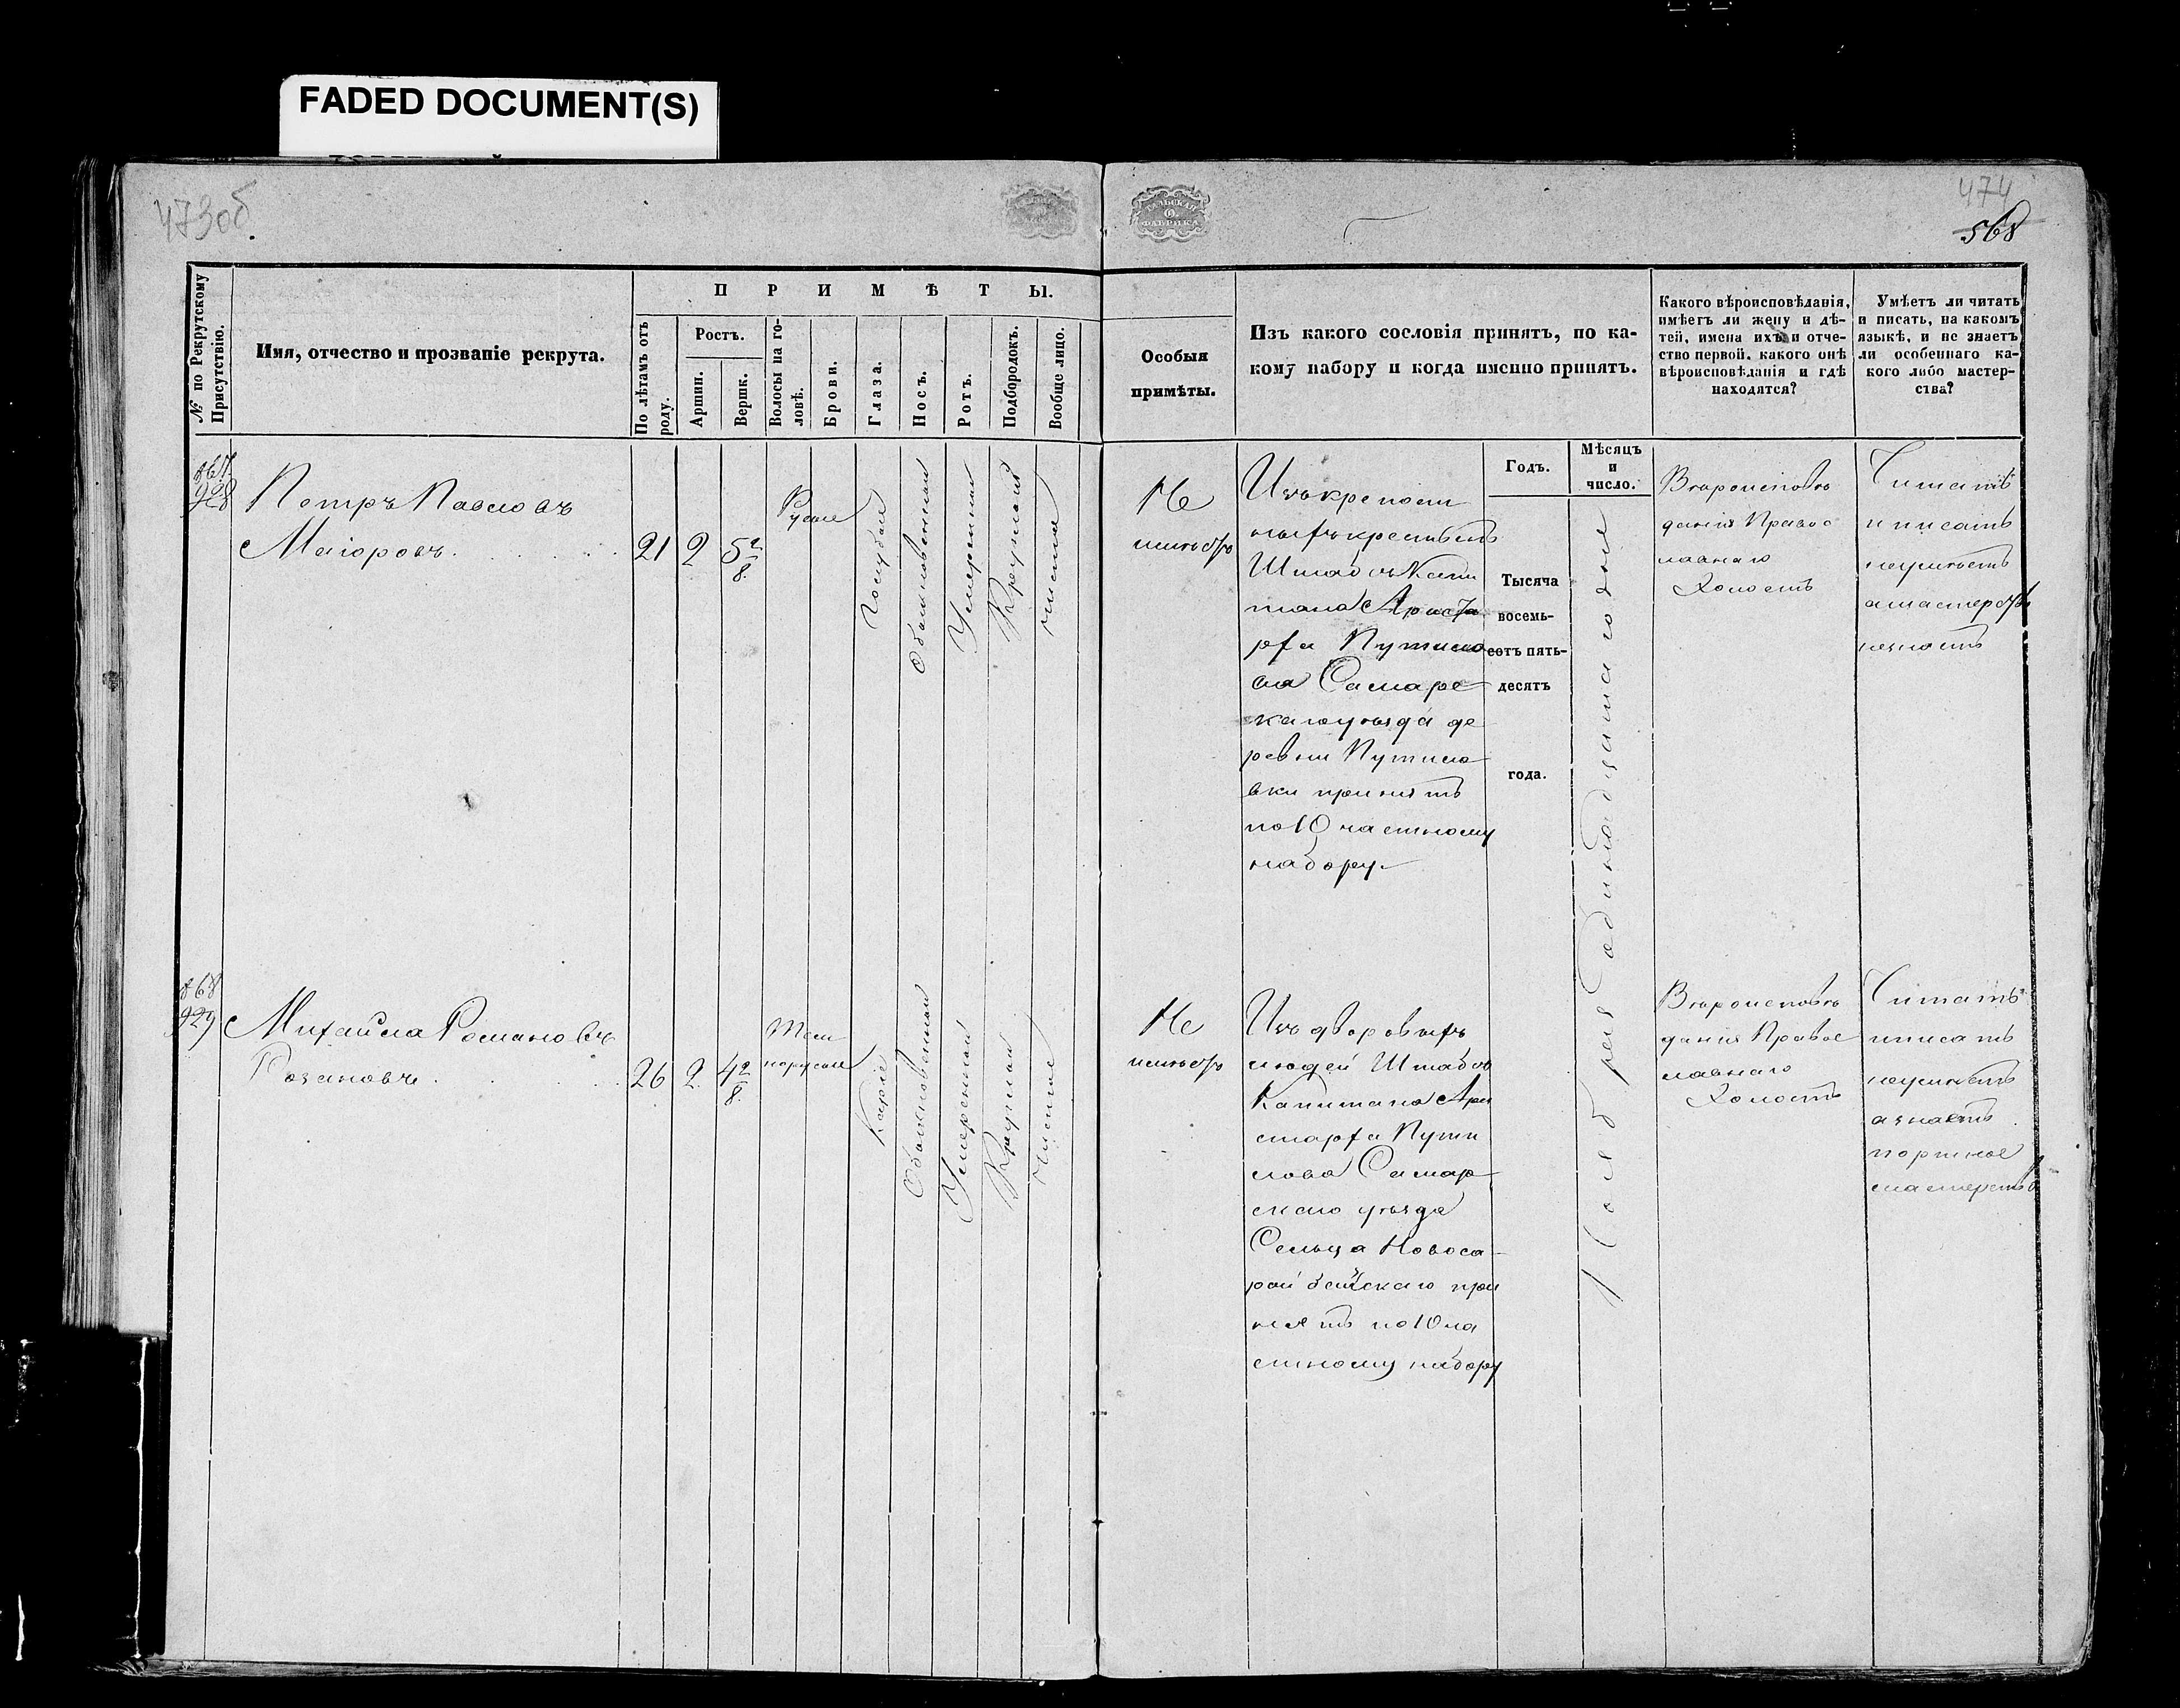 FADED DOCUMENT(S)
473об.
474
568
ТАЛЬСКАЯ
Ф.
ФАБРИКА
№ по Рекрутскому
Присутствію.
Имя, отчество и прозваніе рекрута.
ПРИМѢТЫ.
По лѣтамъ отъ
роду.
Ростъ.
Аршин.
Вершк.
Волосы на го-
ловѣ.
Брови.
Глаза.
Носъ.
Ротъ.
Подбородокъ.
Вообще лицо.
Особыя
примѣты.
Изъ какого сословія принятъ, по ка-
кому набору и когда именно принятъ.
Какого вѣроисповѣданія,
имѣетъ ли жену и дѣ-
тей, имена ихъ и отче-
ство первой, какого онѣ
вѣроисповѣданія и гдѣ
находятся?
Умѣетъ ли читать
и писать, на какомъ
языкѣ, и не знаетъ
ли особеннаго ка-
кого либо мастер-
ства?
Годъ.
Мѣсяцъ
и
число.
Тысяча
восемь-
сотъ пять-
десятъ
года.
Ноября одинадцатого дня
867.
928
Петръ Павловъ
Маіоровъ.
21
2
5 2/8.
Русые
Голубые
Обыкновенный
Умеренный
Круглый
чистое
Не
имѣетъ
Изъ крепост
ныхъ крестьянъ
Штабсъ Капи
танаАриста
рха Путило
ва Самарс
каго уѣзда де
ревни Путило
вки принятъ
по 10 частному
набору.
Вѣроисповѣ
данія Правос
лавнаго
Холостъ
Читать
и писать
неумѣетъ
а мастерства
незнаетъ
868
929
Михайла Романовъ
Розановъ.
26
2
4 2/8.
Тем
норусые
Каріе
Обыкновенный
Умеренный
Круглый
Чистое
Не
имѣетъ
Изъ дворовыхъ
людей Штабсъ
Капитана Ари
старха Пути
лова Самар
скаго уѣзда
Сельца Новоса
принятъ по 10 ча
стному набору
Вѣроисповѣ
данія Правос
лавнаго
Холостъ
Читать
и писать
неумѣетъ
а знаетъ
портное
мастерство